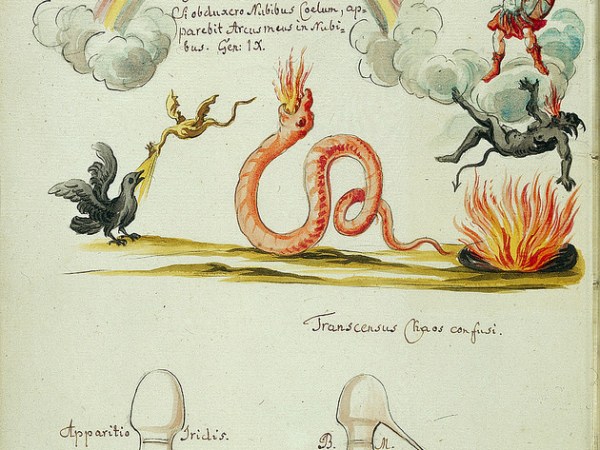 Cũ obduxero Nubibus Coelum, ap-
parebit Arcus meus in Nubi-
bus. Gen: IX.
Transcensus Chaos confusi.
Apparitio Iridis.
B. M.